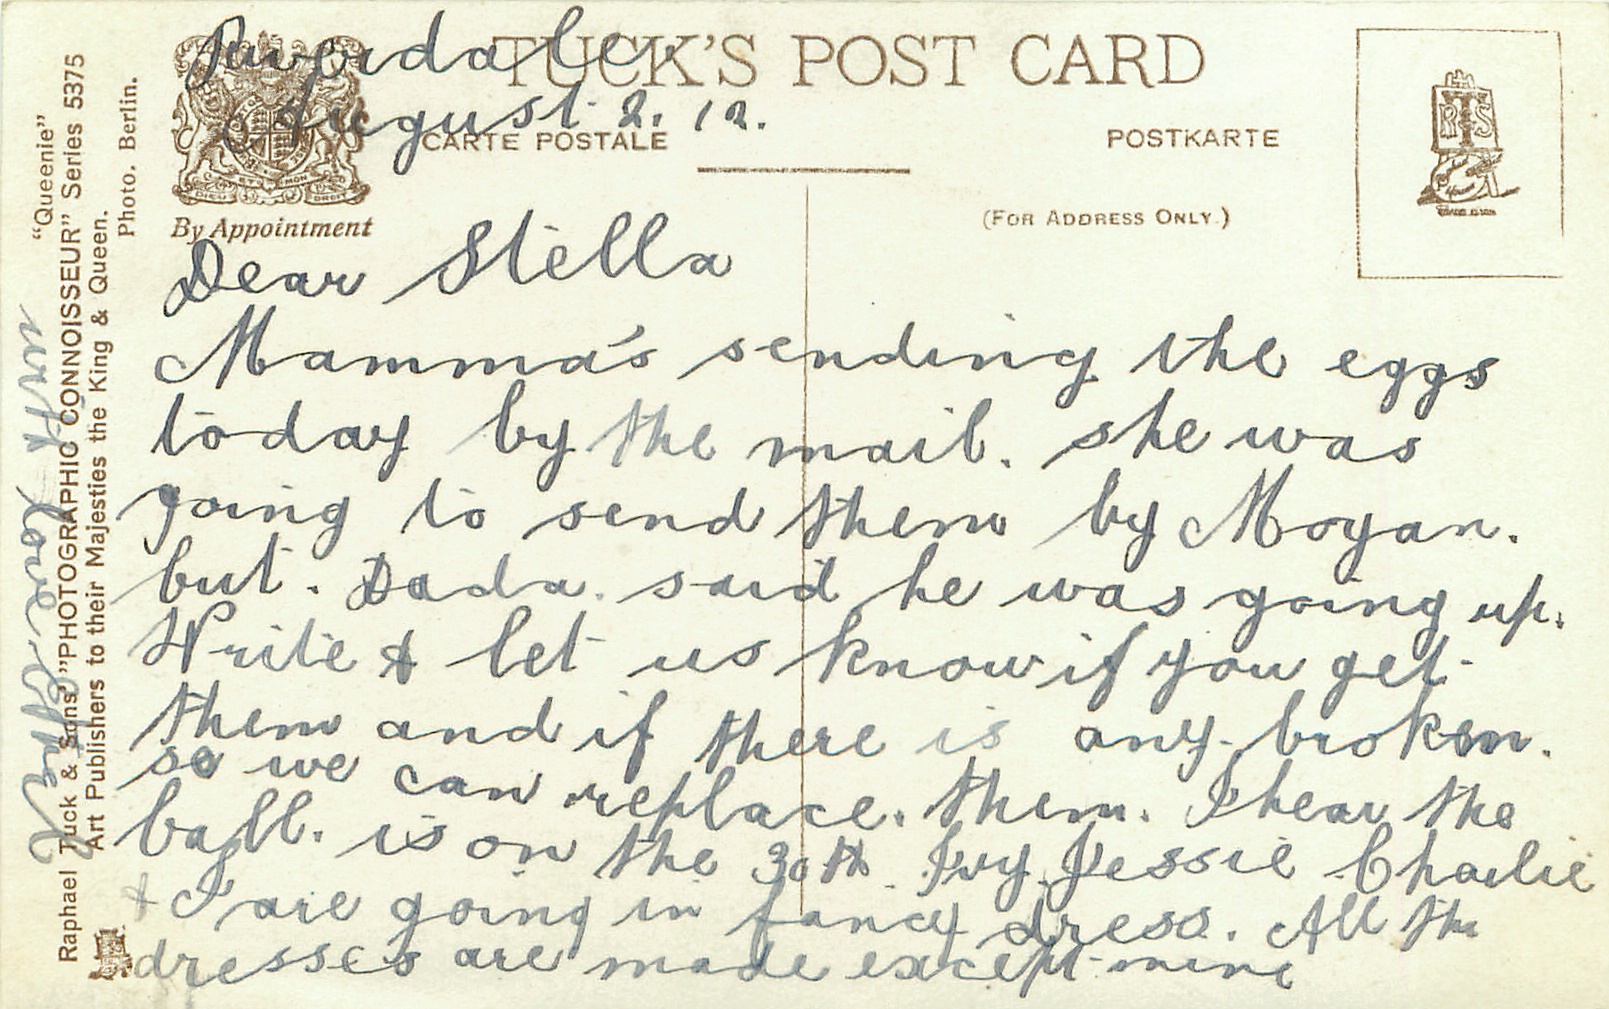 Riverdale.
August. 2. 12.
TUCK'S POST CARD
CARTE POSTALE
POSTKARTE
(FOR ADDRESS ONLY.)
By Appointment
DIEU ET MON DROIT
RTS
Dear Stella
Mamma's sending the eggs
today by the mail. she was
going to send them by Moyan.
but. Dada. said he was going up.
Write & let us know if you get
them and if there is any. broken.
so we can replace. them. I hear the
ball. is on the 30th. Ivy. Jessie Charlie
& I are going in fancy dress. All the
dresses are made except mine
with love Ethel
"Queenie"
Raphael Tuck & Sons' "PHOTOGRAPHIC CONNOISSEUR" Series 5375
Art Publishers to their Majesties the King & Queen.
Photo. Berlin.